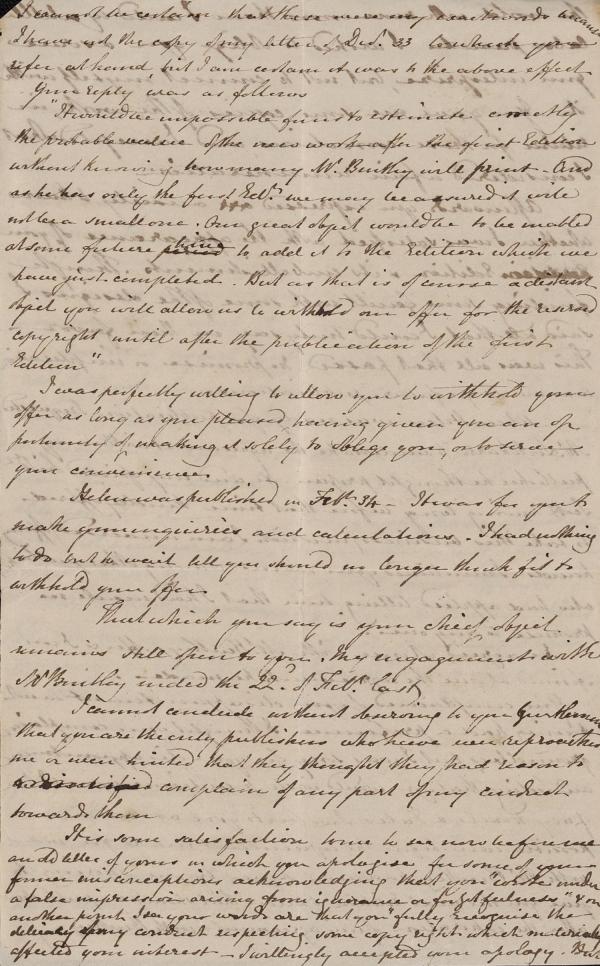 I cannot be certain that these were my exact words because
I have not the copy of my letter of Decr. 33 to which you
refer at hand, but I am certain it was to the above effect
Your reply was as follows
"It would be impossible for us to estimate correctly
the probable value of the new work after the first Edition
without knowing how many Mr. Bentley will print - And
as he has only the first Edn. we may be assured it will
not be a small one. Our great object would be to be enabled
at some future time to add it to the Edition which we
have just completed. But as that is of course a distant
object you will allow us to withhold our offer for the reserved
copyright until after the publication of the first
Edition"
I was perfectly willing to allow you to withhold your
offer as long as you pleased, having given you an op
portunity of making it solely to oblige you, or to serve
your convenience
Helen was published in Feby. 34 - It was for you to
make your inquiries and calculations. I had nothing
to do but to wait till you should no longer think fit to
withhold your offer
That which you say is your chief object
remains still open to you. My engagement with
Mr Bentley ended the 22d. of Feby. last
I cannot conclude without observing to you Gentlemen
that you are the only publishers who have ever reproached
me or even hinted that they thought they had reason to
complain of any part of my conduct
towards them
It is some satisfaction to me to see now before me
an old letter of yours in which you apologise for some of your
former misconceptions acknowledging that you "wrote under
a false impression arising from ignorance or forgetfulness," & on
another point I see your words are that you "fully recognise the
delicacy of my conduct respecting some copyright which materially
affected your interest - I willingly accepted your apology. But